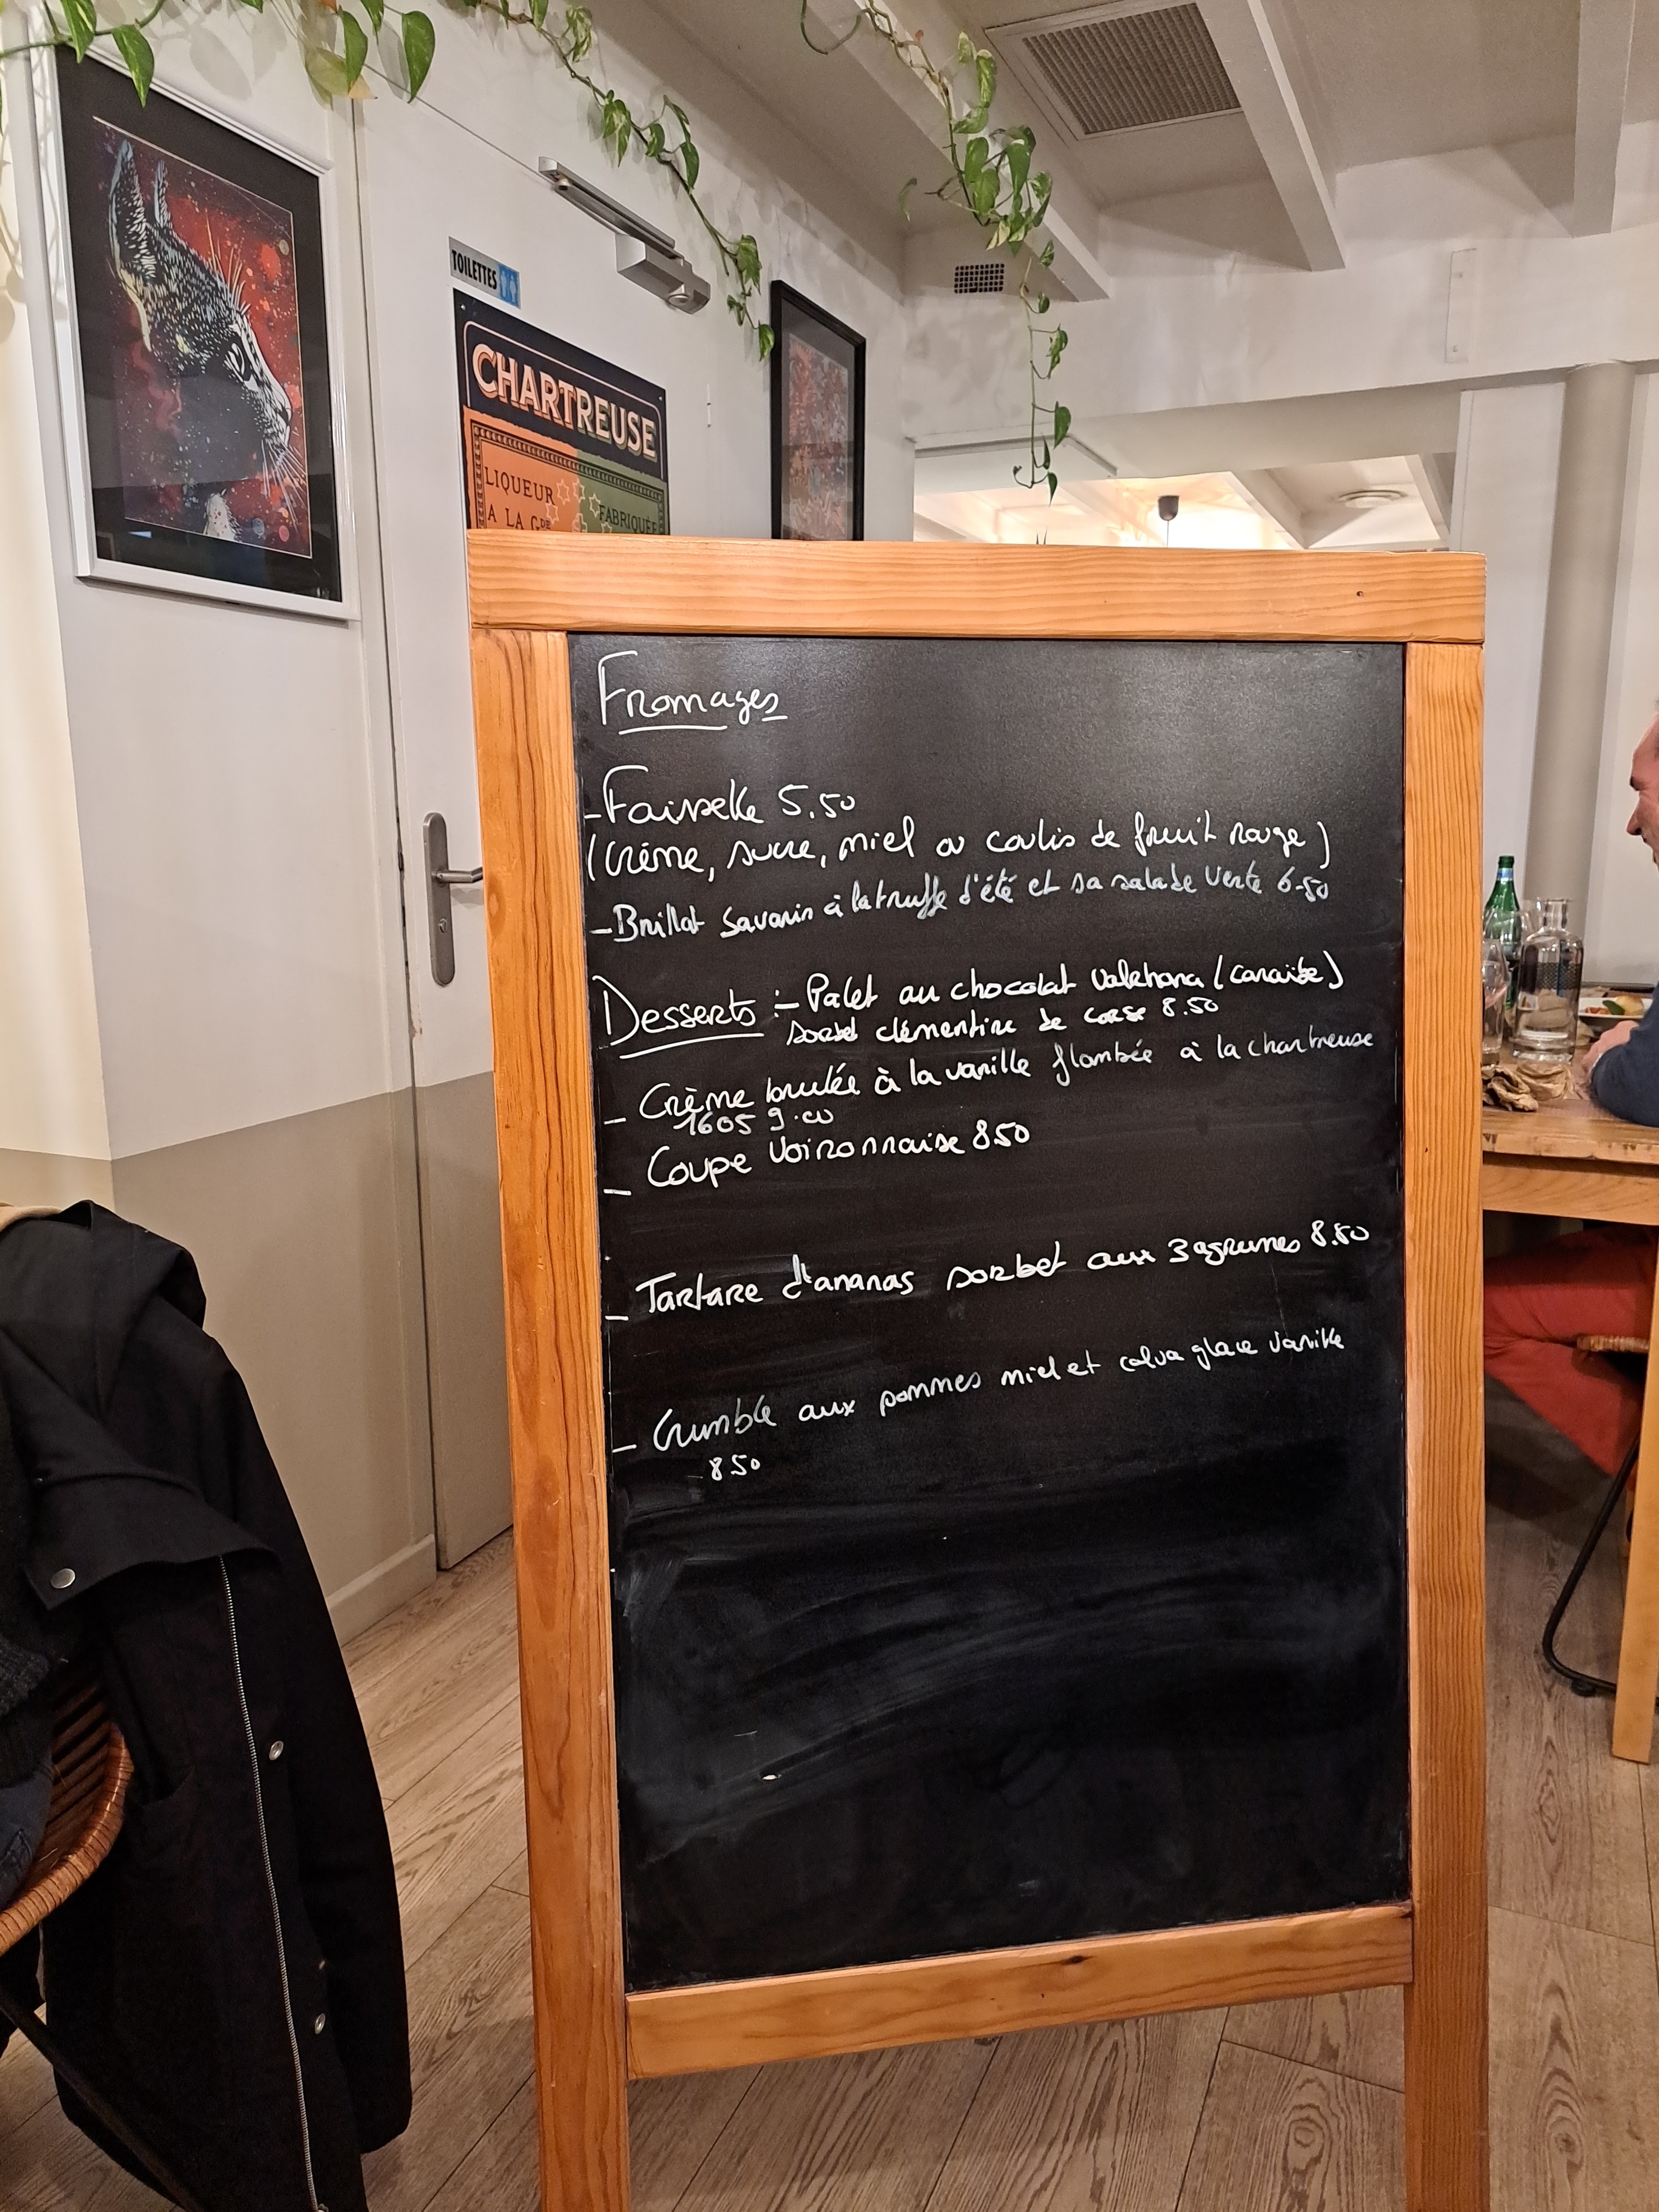 TOILETTES
CHARTREUSE
LIQUEUR
A LA Gde
FABRIQUÉE
Fromages
- Faisselle 5.50
(Crème, sucre, miel ou coulis de fruit rouge)
- Brillat Savarin à la truffe d'été et sa salade verte 6.50
Desserts :- Palet au chocolat Valrhona (Caraïbe)
sorbet clémentine de corse 8.50
- Crème brulée à la vanille flambée à la chartreuse
1605 9.00
- Coupe Voironnaise 850
- Tartare d'ananas sorbet aux 3 agrumes 8.50
- Crumble aux pommes miel et calva glace vanille
850